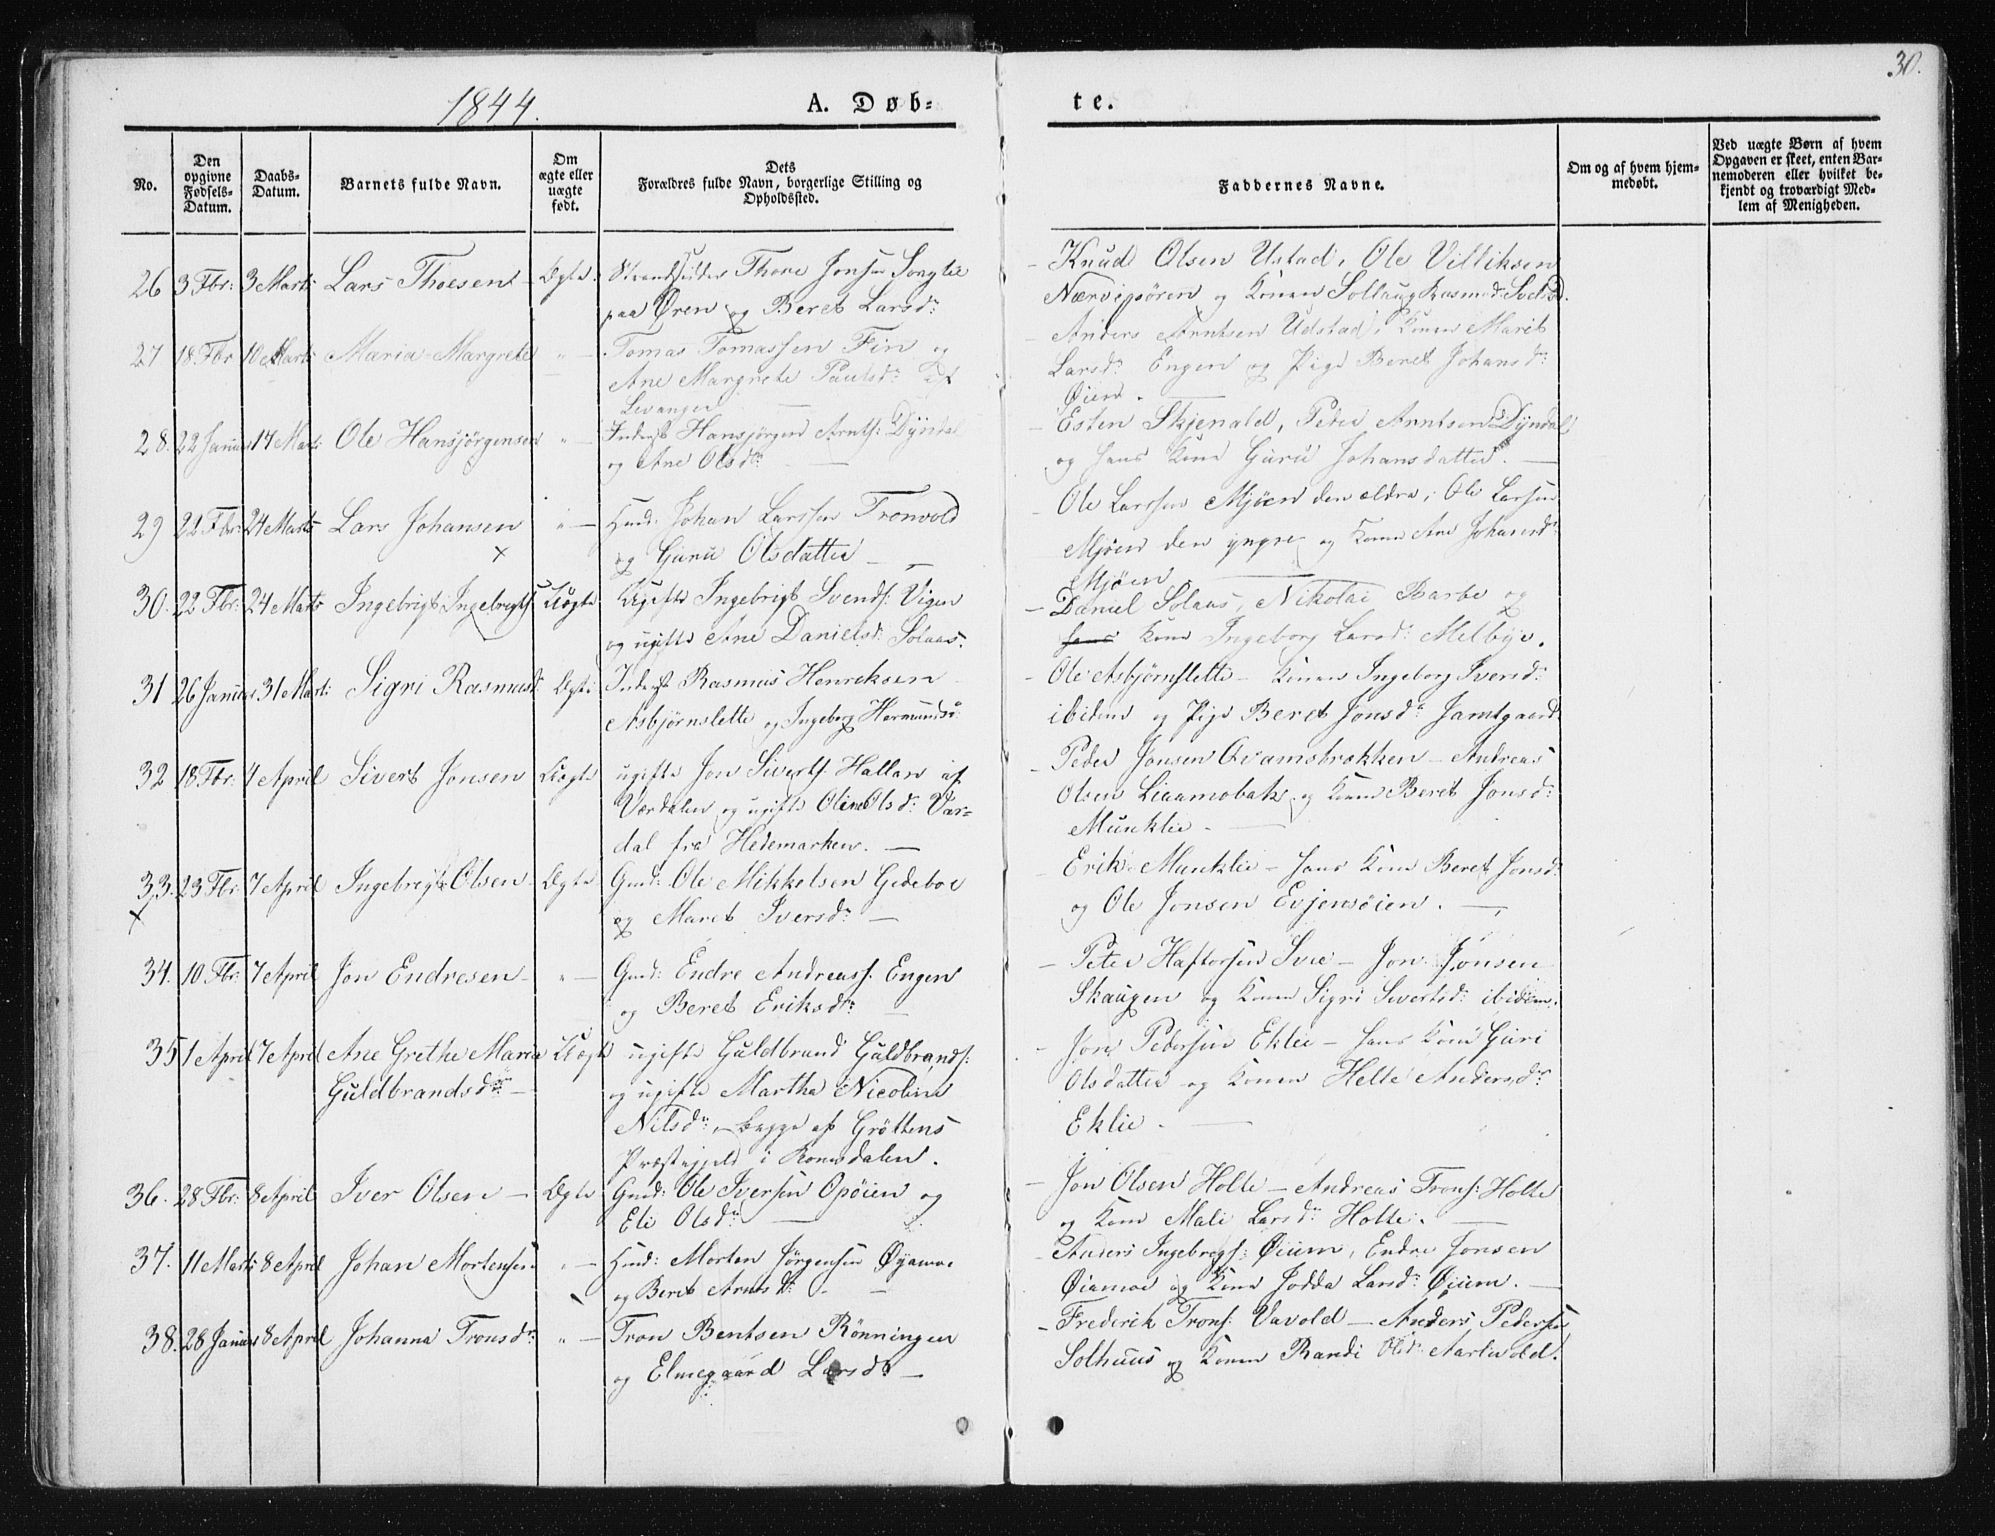 30.
1844.
A. Døb=
te.
No.
Den opgivne Fødsels-Datum.
Daabs-Datum.
Barnets fulde Navn.
Om ægte eller uægte født.
Dets Forældres fulde Navn, borgerlige Stilling og Opholdssted.
Faddernes Navne.
Om og af hvem hjemmedøbt.
Ved uægte Børn af hvem Opgaven er skeet, enten Barnemoderen eller hvilket bekjendt og troværdigt Medlem af Menigheden.
26 3 Fbr: 3 Marts Lars Thoesen Ægte Strandsidder Thore Jonsen Songlie
paa Øren og Beret Larsdr:
Knud Olsen Ustad, Ole Villiksen
og Konen Sollaug Rasmusd:
27 18 Fbr 10 Marts Maria Margrete " — Tomas Tomassen Fin og
Ane Margrete Paulsdr: af
Levanger
Anders Arntsen Udstad, Konen Marit
Larsdr: Engen og Pige Beret Johansdr:
Øien.
28. 22 Januar 14 Marts Ole Hansjörgensen " — Inderst Hansjørgen Arnts: Dyndal
og Ane Olsdr:
Esten Skjenald, Peter Arntsen Dyndal
og hans Kone Guru Johansdatter.
29 22 Fbr: 24 Marts Lars Johansen " — Huusd: Johan Larssen Tronvold
og Guru Olsdatter
Ole Larssen Mjöen den eldre, Ole Larsen
Mjöen den yngre og Konen Ane Johansdr:
Mjöen
30. 22 Fbr: 24 Marts Ingebrigt Ingebrigts: Uægte Ugifte Ingebrigt Svends: Vigen
og ugifte Ane Danielsd: Solaas.
Daniel Solaas, Nikolai Barbo og
hans Kone Ingeborg Larsd: Melbye.
31 26 Januar 31 Marts Sigri Rasmusd: Ægte Inderst Rasmus Henriksen
Asbjørnslette og Ingeborg Hermundsd:
Ole Asbjørnslette — Konen Ingeborg Iversdr:
ibidem og Pige Beret Jonsdr: Jamtgaard
32 18 Fbr: 4 April Sivert Jonsen Uægte ugifte Jon Siverts: Hallan af
Værdalen og ugifte Oline Olsd: Var=
dal fra Hedemarken. —
Peder Jonsen Qvamsbrekken — Andreas
Olsen Liaamobak og Konen Beret Jonsd:
Munklie —
33. 23 Fbr 7 April Ingebrigt Olsen Ægte Gmd: Ole Mikkelsen Gedeboe
og Maret Iversdr: —
Erik Munklie — hans Kone Beret Jonsd:
og Ole Jonsen Evjensøien. —
34. 10 Fbr: 7 April Jon Endresen — " — Gmd: Endre Andreass: Engen
og Beret Eriksdr:
Peter Haftorsen Svee — Jon Jonsen
Skaugen og Konen Sigri Sivertsd: ibidem.
35 1 April 7 April Ane Grethe Maria Uægte ugifte Guldbrand Guldbrands:
Guldbrandsdr: — og ugifte Martha Nicoline
Nilsdr: — begge af Gröttens
Præstegjeld i Romsdalen.
Jon Pedersen Eklie — hans Kone Guri
Olsdatter og Konen Helte Andersdr:
Eklie —
36. 28 Fbr: 8 April Iver Olsen — Ægte Gmd: Ole Iversen Opöien og
Eli Olsdr:
Jon Olsen Holte — Andreas Trons: Holte
og Kone Mali Larsdr: Holte. —
37. 11 Marts 8 April Johan Mortensen " — Huusd: Morten Jørgensen Øyamoe
og Beret Arntsdr: —
Anders Ingebrigts: Øium, Endre Jonsen
Øiamoe og Kone Jodda Larsdr: Øium. —
38. 28 Januar 8 April Johanna Tronsdr: " — Tron Bentsen Rönningen
og Elmegaard Larsdr: —
Frederik Trons: Vavold — Anders Pedersen
Solhuus og Konen Randi Olsd: